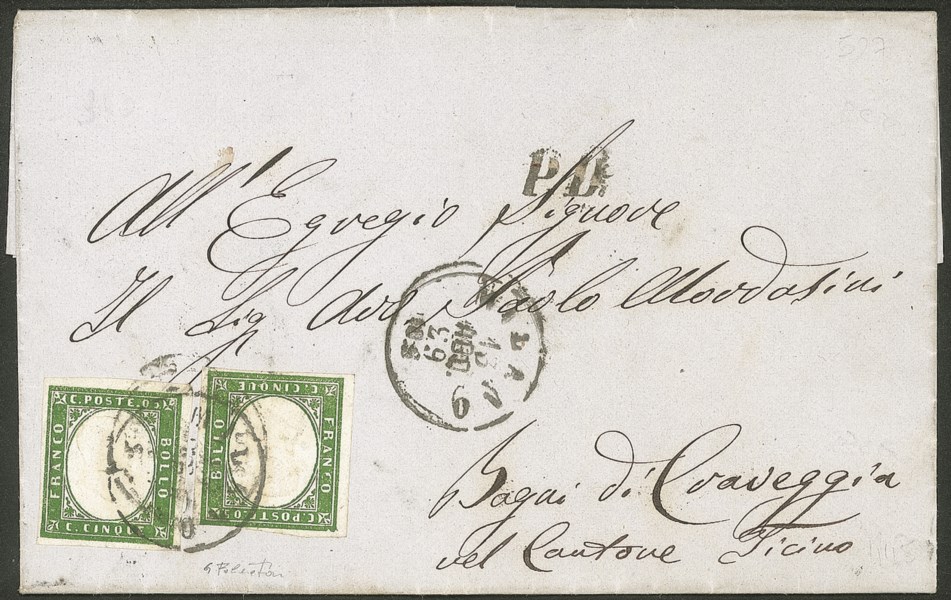 527
P.D.
All' Egregio Signore
Il Sig. dott. Paolo Mordasini
MILANO
12
GEN.
63
C. POSTE. 05
FRANCO
BOLLO
C. CINQUE
C. CINQUE
BOLLO
FRANCO
C. POSTE. 05
Bagni di Craveggia
nel Cantone Ticino